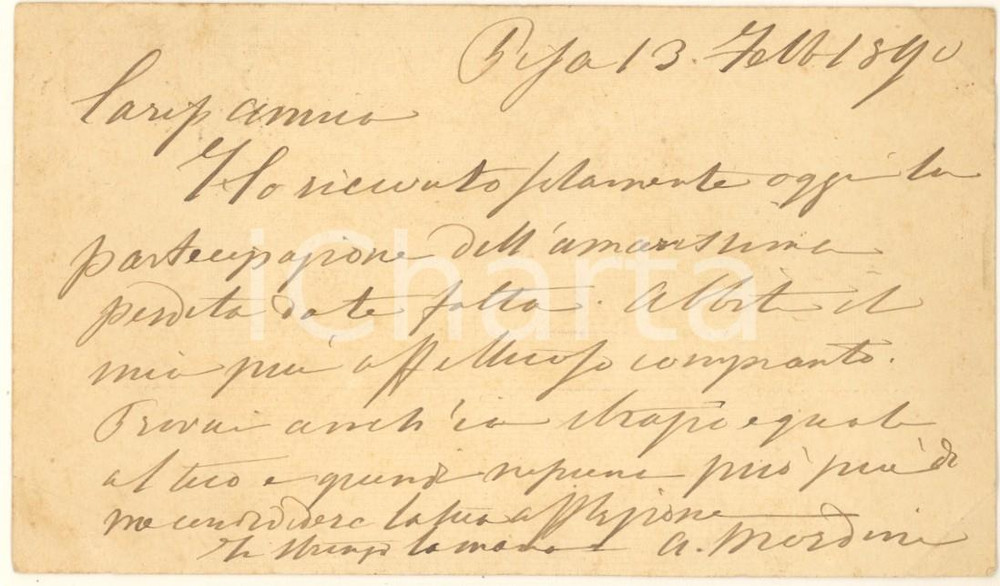 Pisa 13. Febb 1890
Cariss amico
Ho ricevuto solamente oggi la
partecipazione dell'amarissima
perdita da te fatta. Abbiti il
mio più affettuoso compianto.
Provai anch'io strazio eguale
al tuo e quindi nessuno può più di
me condividere la tua afflizione
Ti stringo la mano A. Mordini
iCharta